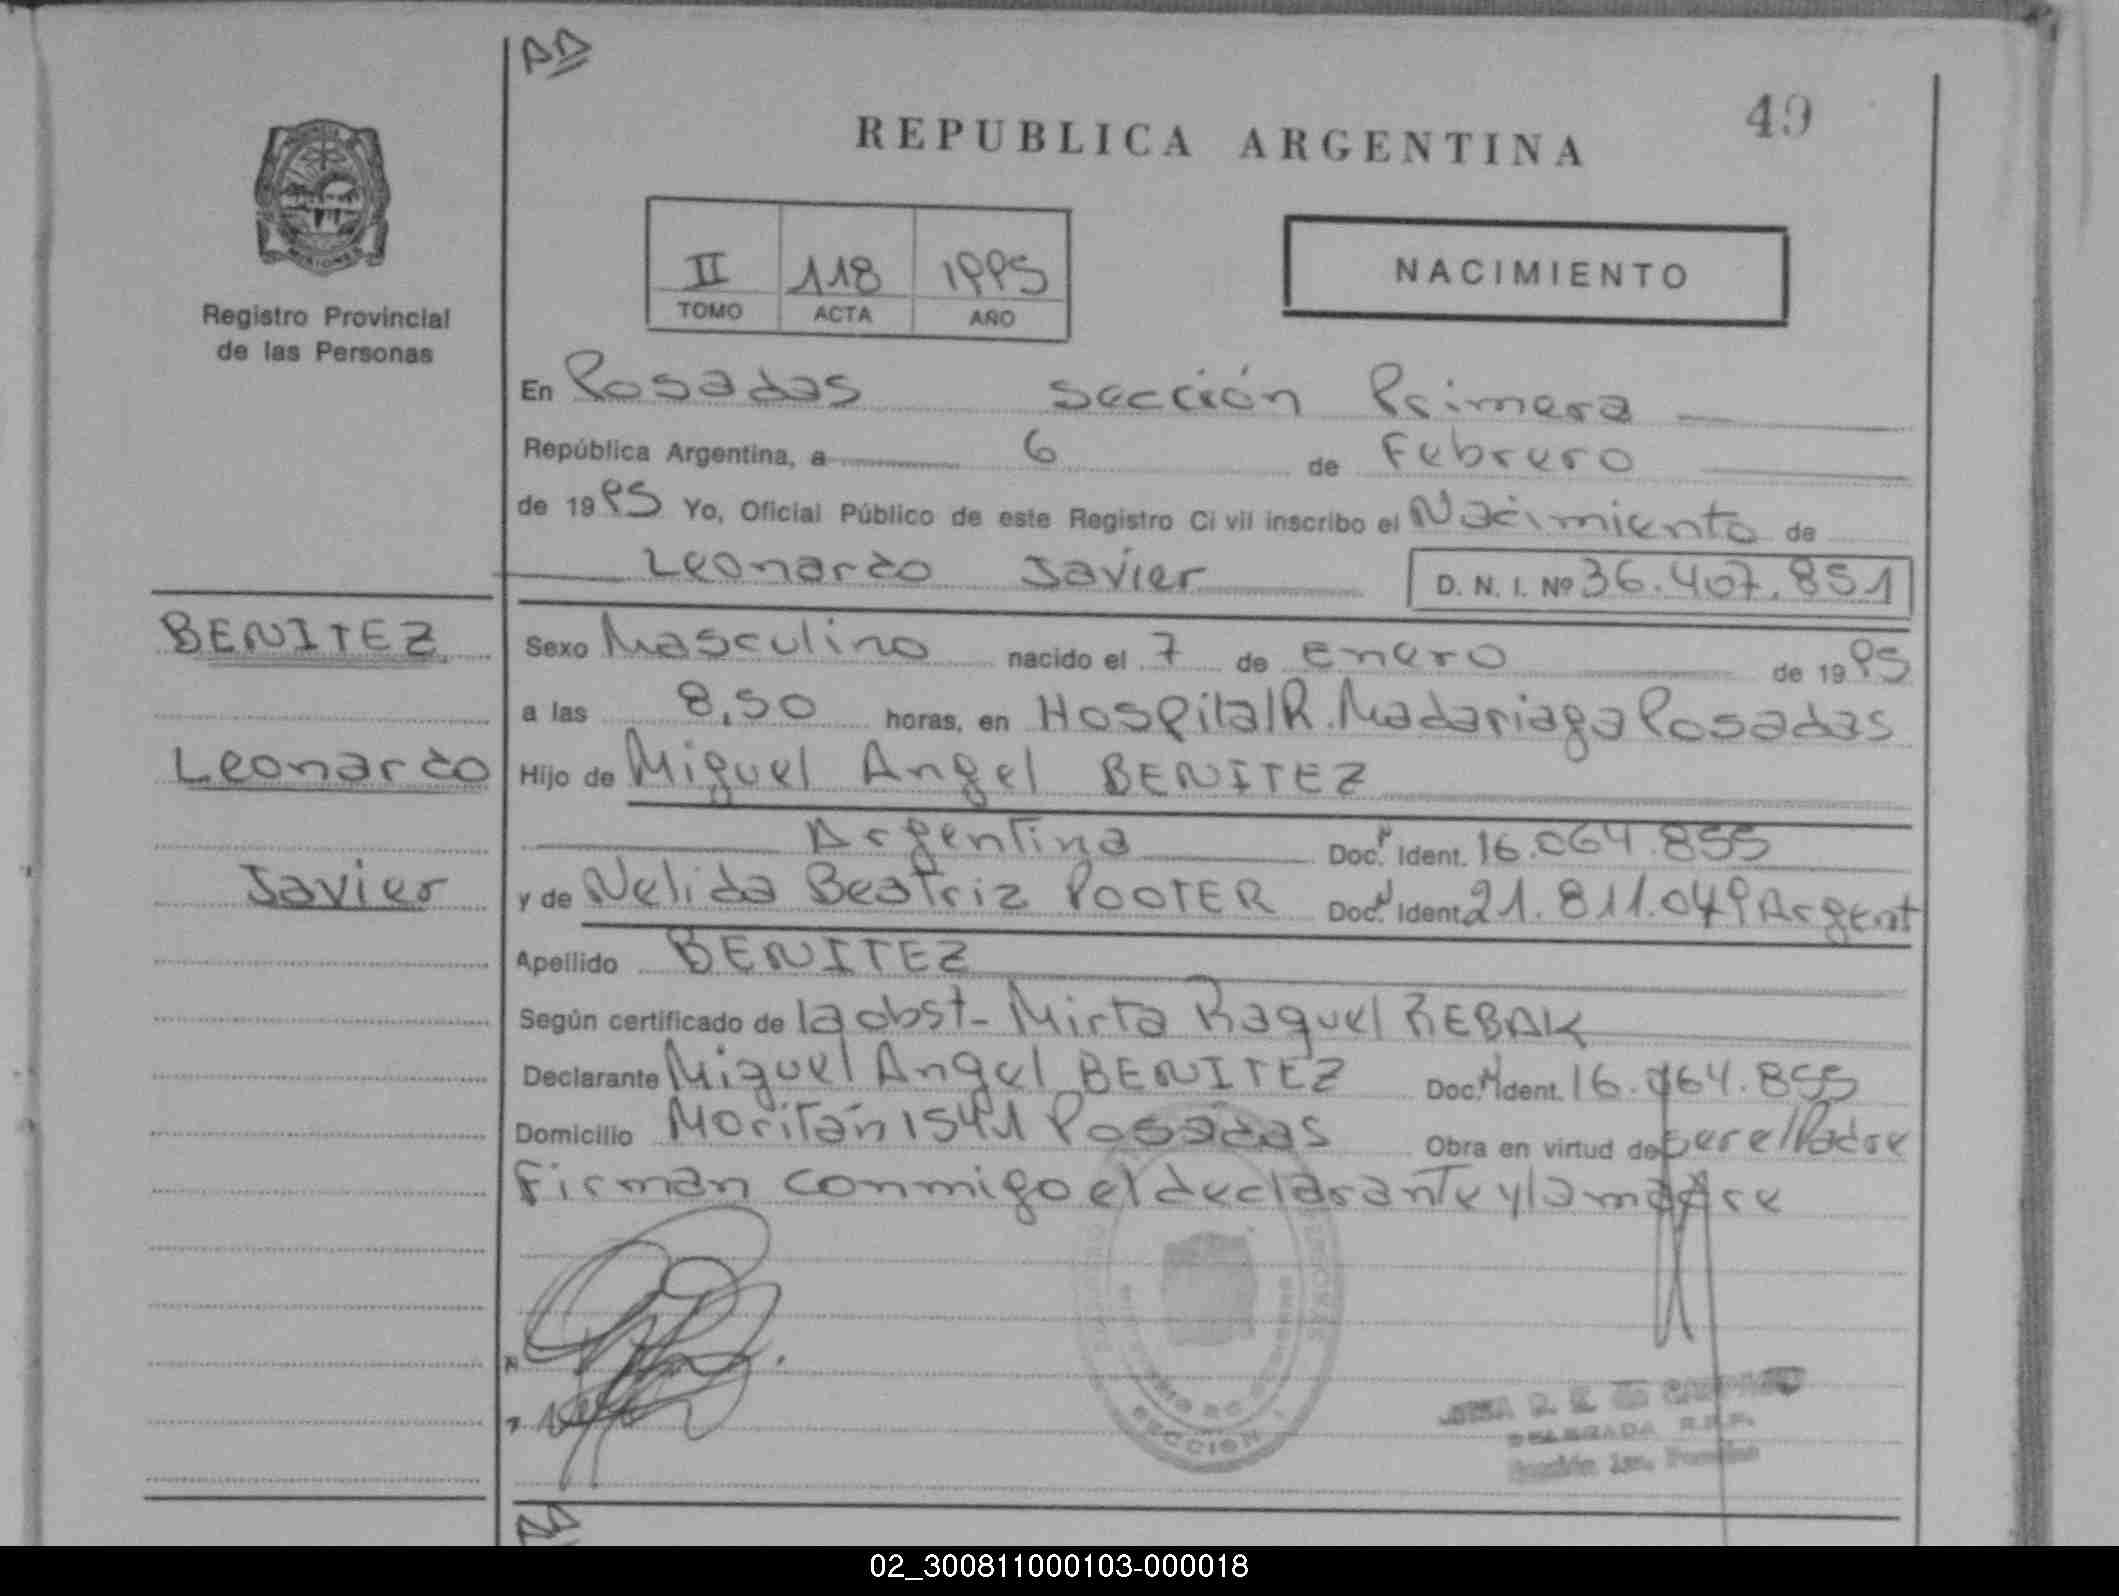 AD
49
REPUBLICA ARGENTINA
II 118 1995
TOMO ACTA AÑO
NACIMIENTO
Registro Provincial
de las Personas
En Posadas Sección Primera
República Argentina, a 6 de Febrero
de 1995 Yo, Oficial Público de este Registro Civil inscribo el Nacimiento de
Leonardo Javier D. N. I. Nº 36.407.851
BENITEZ
Leonardo
Javier
Sexo Masculino nacido el 7 de enero de 1995
a las 8,50 horas, en Hospital R. Madariaga Posadas
Hijo de Miguel Angel BENITEZ
Argentina Doc. Ident. 16.064.855
y de Nelida Beatriz POOTER Doc. Ident. 21.811.049 Argent
Apellido BENITEZ
Según certificado de la obst- Mirta Raquel REBAK
Declarante Miguel Angel BENITEZ Doc. Ident. 16.064.855
Domicilio Moritán 1541 Posadas Obra en virtud de ser el Padre
Firman conmigo el declarante y la madre
SECCION 1
DELEGADA R.P.P.
Sección 1ra. Posadas
AD
02_300811000103-000018